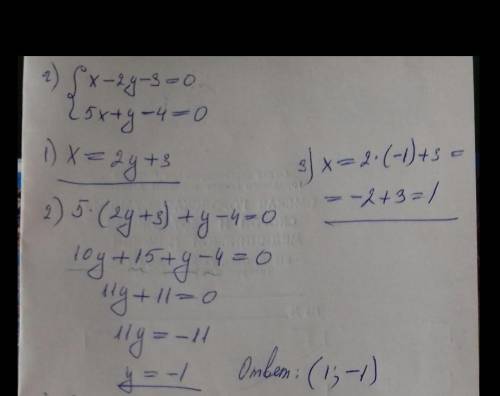 г) { x-2y-3=0
5x+y-4=0
1) x=2y+3
2) 5·(2y+3)+y-4=0
10y+15+y-4=0
11y+11=0
11y=-11
y=-1
3) x=2·(-1)+3=
=-2+3=1
Ответ: (1; -1)